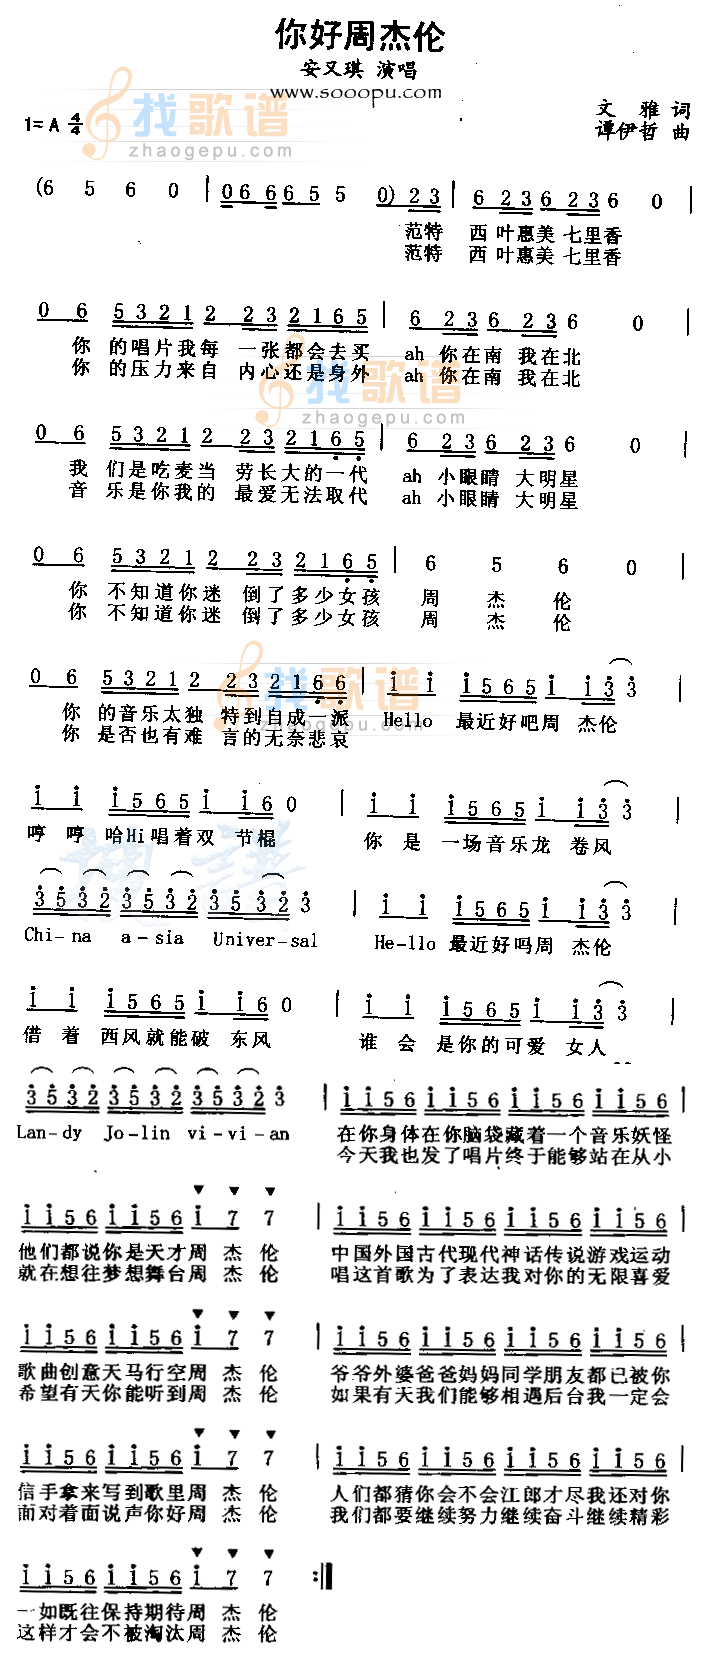 你好周杰伦
安又琪 演唱
www.sooopu.com
1=A 4/4
文雅 词
谭伊哲 曲
找歌谱
zhaogepu.com
(6 5 6 0 | 06 66 65 5 0) 23 | 6 236 236 0 |
范特 西 叶惠美 七里香
范特 西 叶惠美 七里香
0 6 53212 23 2165 | 6 236 236 0 |
你 的唱片我每 一张都会去买 ah 你在南 我在北
你 的压力来自 内心还是身外 ah 你在南 我在北
找歌谱
zhaogepu.com
0 6 53212 23 2165 | 6 236 236 0 |
我 们是吃麦当 劳长大的一代 ah 小眼睛 大明星
音 乐是你我的 最爱无法取代 ah 小眼睛 大明星
0 6 53212 23 2165 | 6 5 6 0 |
你 不知道你迷 倒了多少女孩 周 杰 伦
你 不知道你迷 倒了多少女孩 周 杰 伦
找歌谱
zhaogepu.com
0 6 53212 23 2166 | i i i565 i i3 3 |
你 的音乐太独 特到自成一派 Hello 最近好吧周 杰伦
你 是否也有难 言的无奈悲哀
i i i565 i i6 0 | i i i565 i i3 3 |
哼 哼 哈Hi唱着双 节棍 你 是 一场音乐龙 卷风
3532 3532 3532 3 | i i i565 i i3 3 |
Chi-na a-sia Univer-sal He-llo 最近好吗周 杰伦
i i i565 i i6 0 | i i i565 i i3 3 |
借 着 西风就能破 东风 谁 会 是你的可爱 女人
3532 3532 3532 3 | ii56 ii56 ii56 ii56
Lan-dy Jo-lin vi-vi-an 在你身体在你脑袋藏着一个音乐妖怪
今天我也发了唱片终于能够站在从小
ii56 ii56 i 7 7 | ii56 ii56 ii56 ii56
他们都说你是天才周 杰 伦 中国外国古代现代神话传说游戏运动
就在想往梦想舞台周 杰 伦 唱这首歌为了表达我对你的无限喜爱
ii56 ii56 i 7 7 | ii56 ii56 ii56 ii56
歌曲创意天马行空周 杰 伦 爷爷外婆爸爸妈妈同学朋友都已被你
希望有天你能听到周 杰 伦 如果有天我们能够相遇后台我一定会
ii56 ii56 i 7 7 | ii56 ii56 ii56 ii56
信手拿来写到歌里周 杰 伦 人们都猜你会不会江郎才尽我还对你
面对着面说声你好周 杰 伦 我们都要继续努力继续奋斗继续精彩
ii56 ii56 i 7 7 :||
一如既往保持期待周 杰 伦
这样才会不被淘汰周 杰 伦